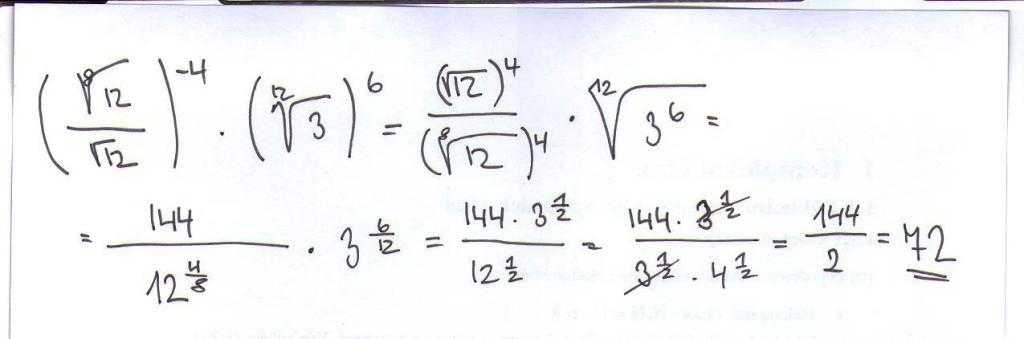 (⁸√12 / √12)⁻⁴ · (¹²√3)⁶ = (√12)⁴ / (⁸√12)⁴ · ¹²√3⁶ =
= 144 / 12^(4/8) · 3^(6/12) = 144 · 3^(1/2) / 12^(1/2) = 144 · 3^(1/2) / 3^(1/2) · 4^(1/2) = 144 / 2 = 72